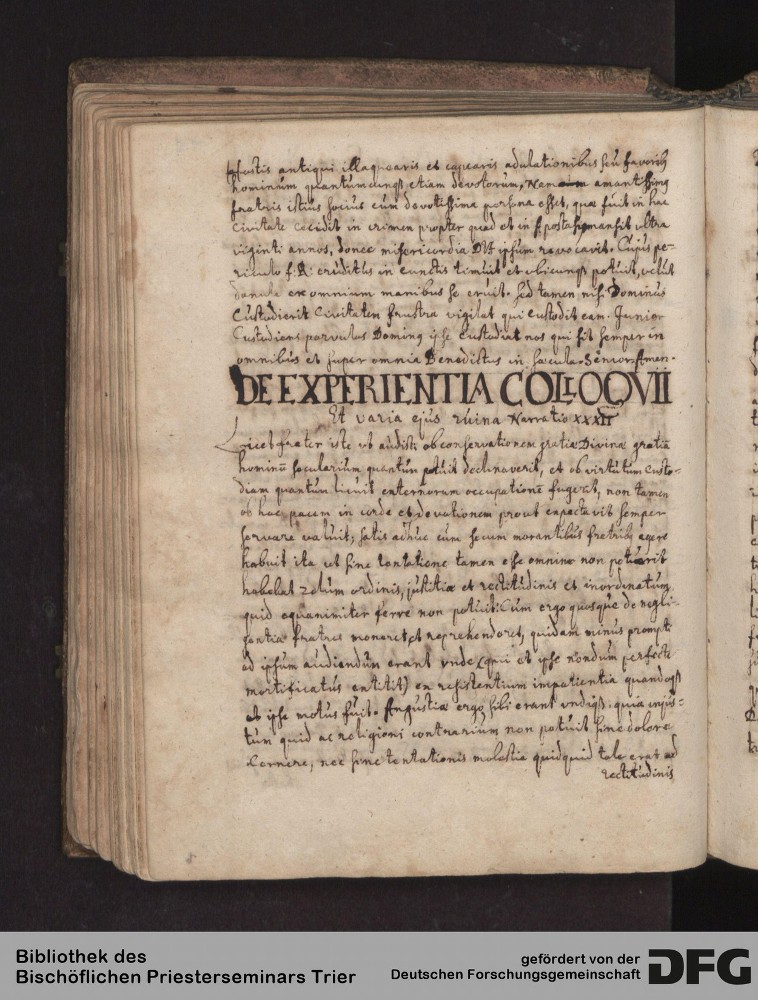 hostis antiqui illaquearis et capearis adulationibus seu favorib9
hominum quantumcunq3 etiam devotorum, Nam amantissimg
fratris istius socius cum devotissima persona esset, quæ fuit in hac
civitate cecidit in crimen propter quod et in postea mansit ultra
viginti annos, donec misericordia Dei ipsum revocavit. Cujus pe-
riculo f: R: eruditus in cunctis timuit et ubicunq3 potuit, velut
damula ex omnium manibus se eruit. sed tamen nisi Dominus
Custodierit Civitatem frustra vigilat qui custodit eam. Junior
Custodiens parvulos Doming ipse custodiat nos qui sit semper in
omnibus et super omnia Benedictus in sæcula. Senior. Amen.
DE EXPERIENTIA COLLOQVII
Et varia ejus ruina Narratio XXXII
Licet frater iste ut audisti ob conservationem gratiæ Divinæ gratiā
hominū sæcularium quantum potuit declinaverit, et ob virtutum custo-
diam quantum licuit externarum occupationē fugerit, non tamen
ob hoc pacem in corde et devotionem prout expectavit semper
servare valuit; satis adhuc cum secum morantibus fratrib9 agere
habuit ita ut sine tentatione tamen esse omnino non potuerit
habebat zelum ordinis, justitiæ et rectitudinis et inordinatum
quid æquanimiter ferre non potuit: Cum ergo quosque de negli-
gentia fratres moneret et reprehenderet, quidam minus prompti
ad ipsum audiendum erant unde (quia et ipse nondum perfecte
mortificatus extitit) ex resistentium impatientia quandoq3
et ipse motus fuit. Angustiæ ergo sibi erant undiq3: quia injus-
tum quid ac religioni contrarium non potuit sine dolore
Cernere, nec sine tentationis molestia quidquid tale erat ad
rectitudinis
Bibliothek des
Bischöflichen Priesterseminars Trier
gefördert von der
Deutschen Forschungsgemeinschaft
DFG